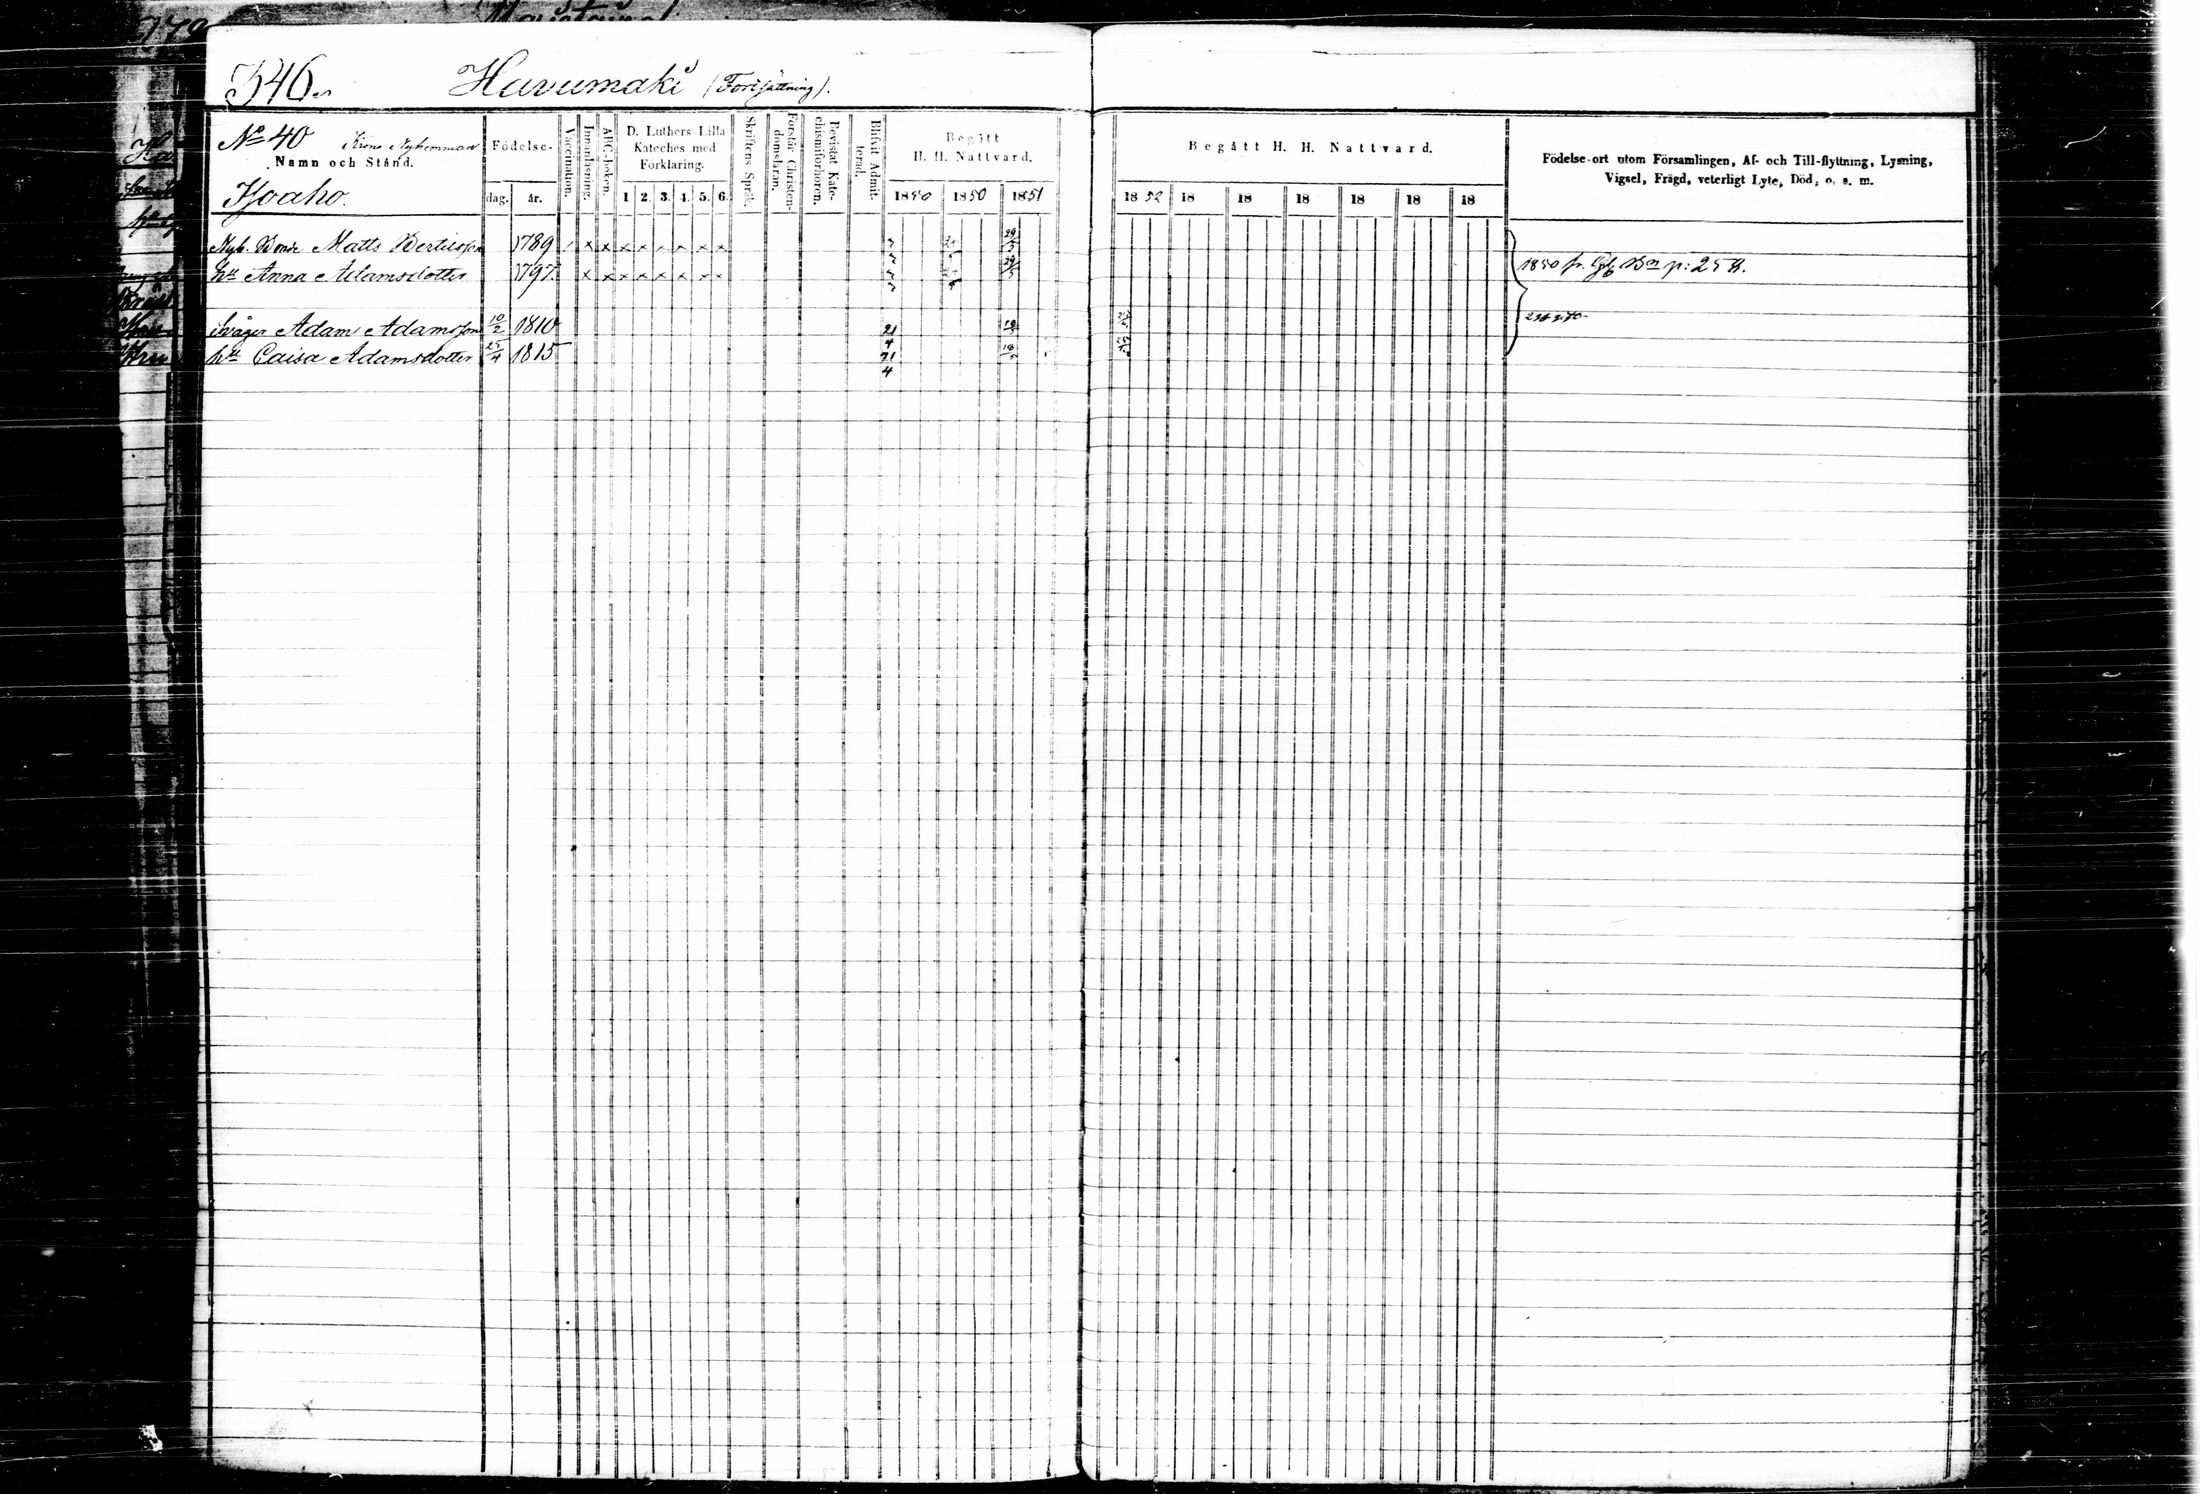 546.
Havumäki (Fortsättning).
No 40 Krono Nyhemman
Namn och Stånd.
Födelse-
dag. år.
Vaccination.
Innanläsning.
ABC-boken.
D. Luthers Lilla
Kateches med
Förklaring.
1 2. 3. 4. 5. 6.
Skriftens Språk.
Förstår Christen-
domsläran.
Bevistat Kate-
chismiförhören.
Blifvit Admit-
terad.
Begått
H. H. Nattvard.
1850 1851
Begått H. H. Nattvard.
1852 18 18 18 18 18 18
Födelse-ort utom Församlingen, Af- och Till-flyttning, Lysning,
Vigsel, Frägd, veterligt Lyte, Död, o. s. m.
Nyb. Bonde Matts Bertilsson 1789 / x x x x x x x x 29/5
hu Anna Adamsdotter 1797 x x x x x x x x 29/5
1850 fr. p: 25
Svåger Adam Adamsson 10/2 1810 21/4
hu Caisa Adamsdotter 25/4 1815 21/4